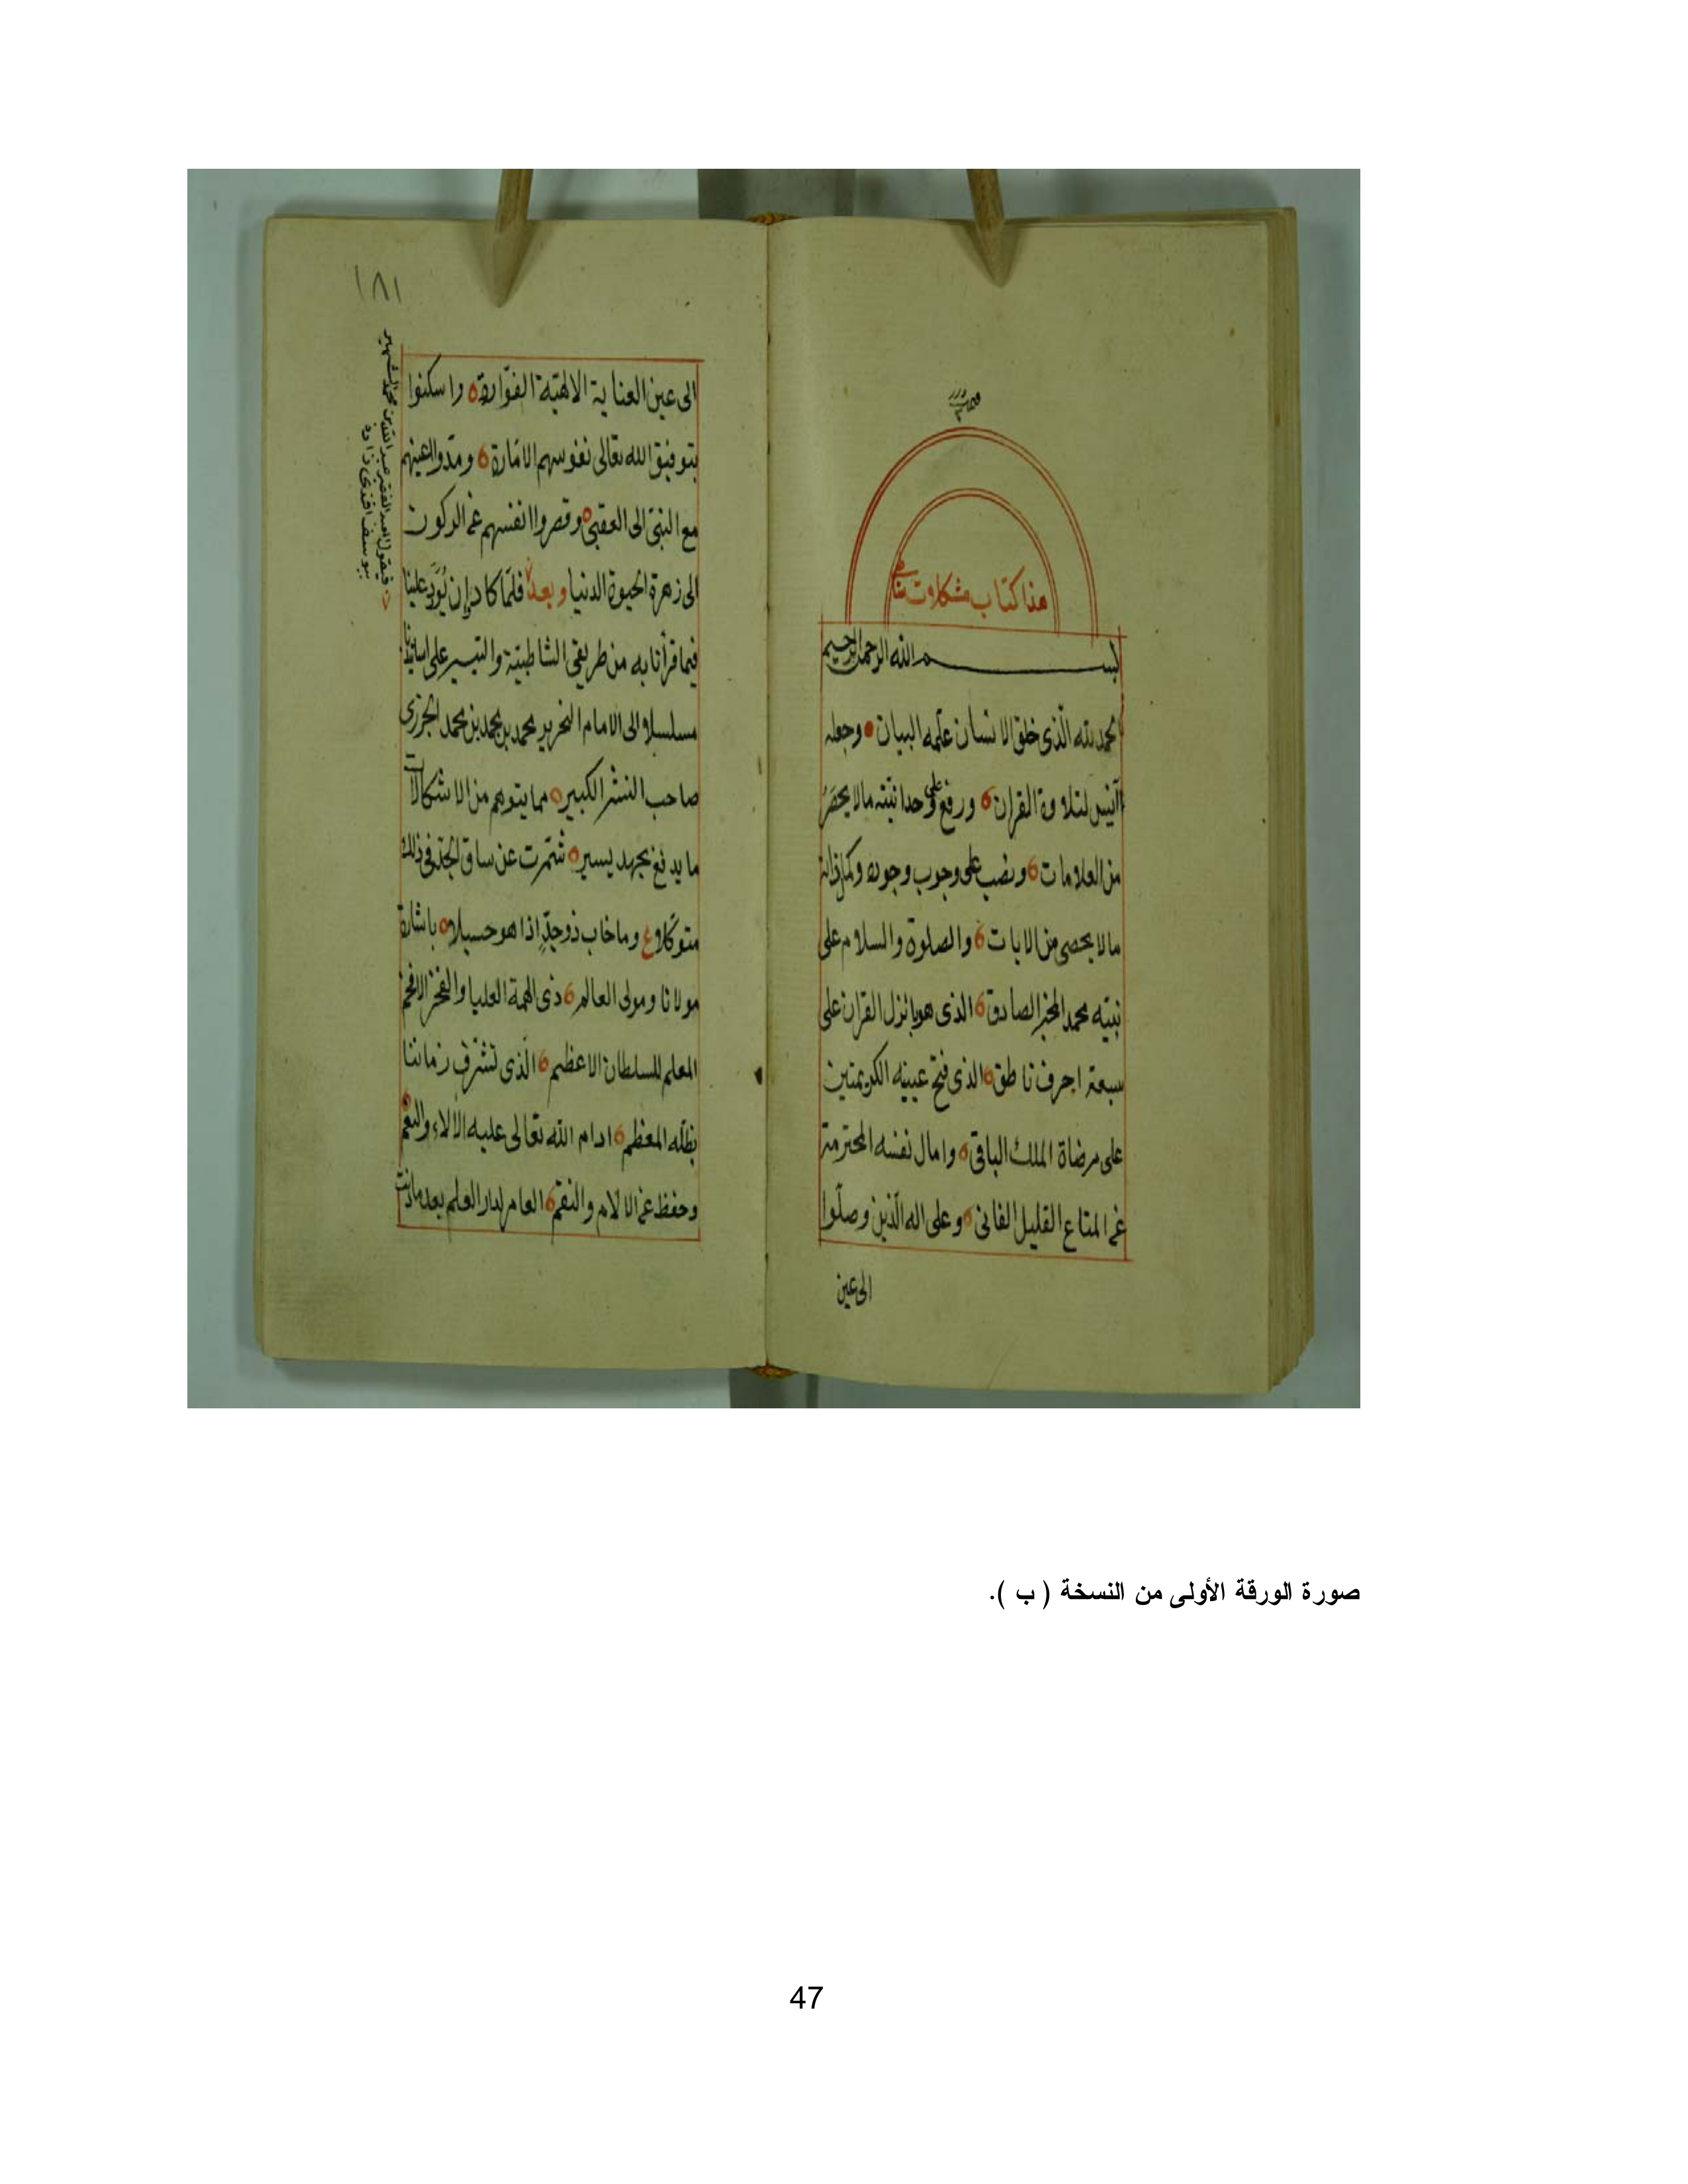 هذا كتاب مشكلات شاطبي
بسم الله الرحمن الرحيم
الحمد لله الذى خلق الانسان علمه البيان وجعله
آنيس لتلاوة القران ورفع على وحدانيته مالا يحصر
من العلامات ونصب على وجوب وجوده وكمال ذاته
مالا يحصى من الايات والصلوة والسلام على
نبيه محمد المخبر الصادق الذى هو بانزل القران على
سبعة احرف ناطق الذى فتح عينيه الكريمتين
على مرضاة الملك الباقى وامال نفسه المحترمة
عن المتاع القليل الفانى وعلى اله الذين وصلوا
الى عين
١٨١
الى عين العناية الالهية الفوارة واسكنوا
بتوفيق الله تعالى نفوسهم الامارة ومدوا اعينهم
مع النبى الى العقبى وقصروا انفسهم عن الركون
الى زهرة الحيوة الدنيا وبعد فلما كاد إن يُوَرَد علينا
فيما قرأنا به من طريقى الشاطبية والتيسير على اساتيذنا
مسلسلا الى الامام النحرير محمد بن محمد بن محمد الجزرى
صاحب النشر الكبير مما يتوهم من الاشكالات
ما يدفع بجهد يسير شمرت عن ساق الجد فى ذلك
متوكلا وما خاب ذو جدٍّ اذا هو حسبلا باشارة
مولانا ومولى العالم ذى الهمة العليا والفخر الافخم
المعلم للسلطان الاعظم الذى تشرف زماننا
بظله المعظم ادام الله تعالى عليه الآلاء والنعم
وحفظ عن الالام والنقم العامر لدار العلم بعد ما
فيقول العبد الفقير عبد الله بن محمد الشهير
بيوسف افندى زاده
صورة الورقة الأولى من النسخة ( ب ).
47